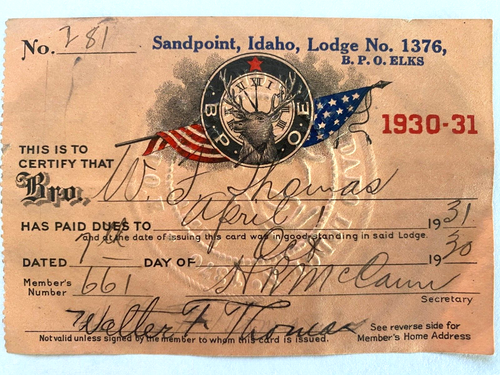 No. 281 Sandpoint, Idaho, Lodge No. 1376,
B. P. O. ELKS
B P O E
1930-31
THIS IS TO
CERTIFY THAT
Bro. W. F. Thomas
HAS PAID DUES TO April 1 1931
and at the date of issuing this card was in good standing in said Lodge.
DATED 7th DAY OF Oct 1930
Member's
Number 661 McCann
Secretary
Walter F Thomas
Not valid unless signed by the member to whom this card is issued.
See reverse side for
Member's Home Address